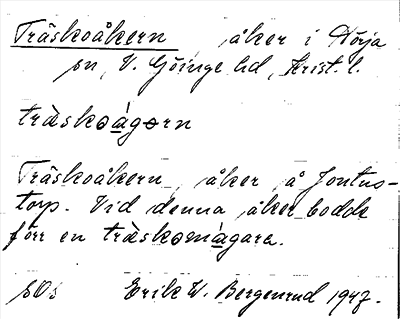 Träskoåkern, åker i Nörja
sn, V. Göinge hd, Krist. l.
träskoágorn
Träskoåkern, åker å Jontus-
torp. Vid denna åker bodde
förr en träskomágara.
sOs Erik W. Bergenrud 1947.